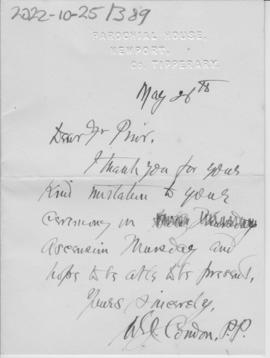 2022-10-25/389
PAROCHIAL HOUSE,
NEWPORT,
CO. TIPPERARY.
May 26th
Dear Fr Prior.
I thank you for your
kind invitation to your
Ceremony on
Ascension Thursday and
hope to be able to be present.
Yours sincerely,
Condon, P.P.